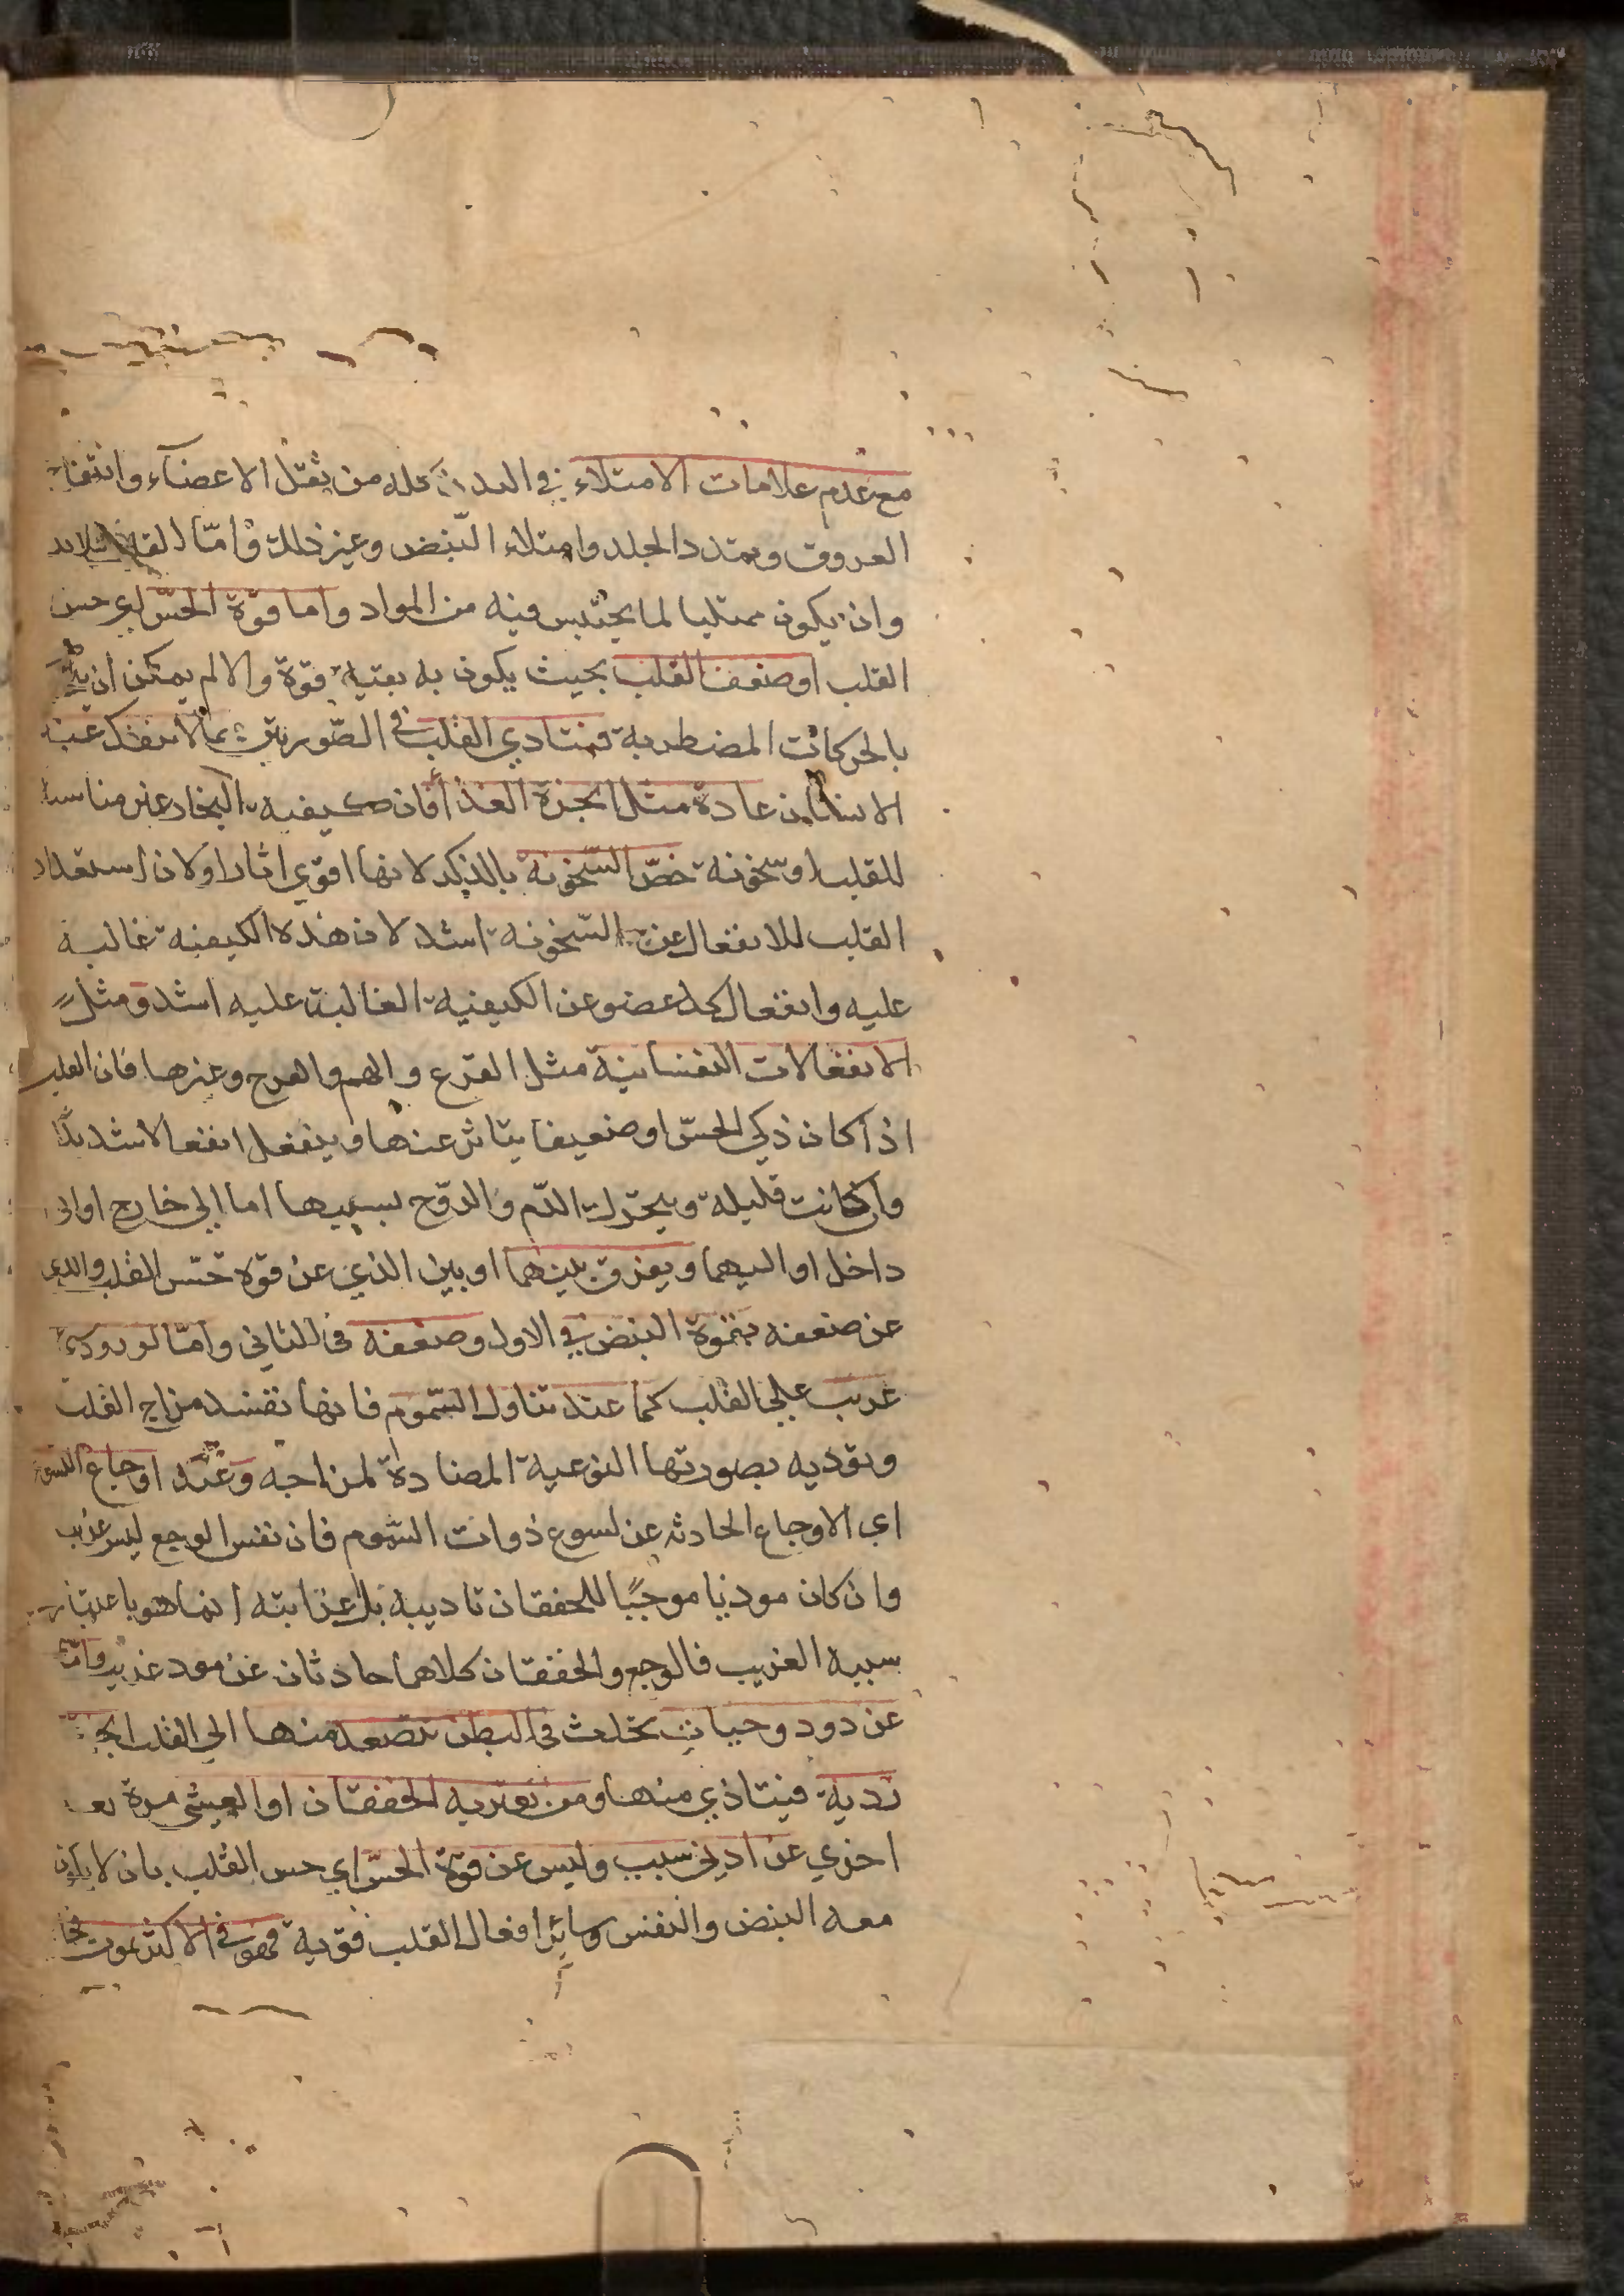 مع عدم علامات الامتلاء في البدن كله من ثقل الاعضآء وانتفاخ
العروق وتمدد الجلد وامتلاء النّبض وغير ذلك وامّا القلب فلابد
وان يكون ممتليا لما يحتبس فيه من المواد واما قوّة الحسّ اي حس
القلب او ضعف القلب بحيث يكون به بقية قوة والا لم يمكن ان
بالحركات المضطربة فيتادي القلب في الصّورتين بما لا ينفك عنه
الانسان عادة مثل ابخرة الغذا فان كيفية البخار غير مناسبة
للقلب او سخونة خصّ السّخونة بالذكر لانها اقوي اثارا ولان استعداد
القلب للانفعال عن السّخونة اشد لان هذه الكيفية غالبة
عليه وانفعال كل عضو عن الكيفية الغالبة عليه اشد ومثل
الانفعالات النفسانية مثل الفزع والهم والفرح وغيرها فان القلب
اذا كان ذكي الحسّ او ضعيفا يتاثر عنها وينفعل انفعالا شديدًا
وان كانت قليلة ويحرّك الدّم والروّح بسببها اما الي خارج او الي
داخل او اليهما ويفرق بينهما او بين الذي عن قوة حسّ القلب والذي
عن ضعفه بقوة النبض في الاول وضعفه في الثاني وامّا لورود
غريب علي القلب كما عند تناول السّموم فانها تفسد مزاج القلب
وتوذيه بصورتها النوعية المضادة لمزاجه وعند اوجاع اللسوع
اي الاوجاع الحادثه عن لسوع ذوات السّموم فان نفس الوجع ليس غريب
وان كان موذيا موجبًا للخفقان تاديبه بل غرابته انما هو باعتبار
سببه الغريب فالوجع والخفقان كلاهما حادثان عن موذ غريب وامّا
عن دود وحيات تخلت في البطن تتصعد منها الي القلب ابخرة
ردية فيتاذي منها ومن يعتريه الخفقان او الغشي مرة بعد
اخري عن ادني سبب وليس عن قوة الحسّ اي حس القلب بان لا يكون
معه النبض والنفس وسائر افعال القلب قوية فهو في الاكثر يموت